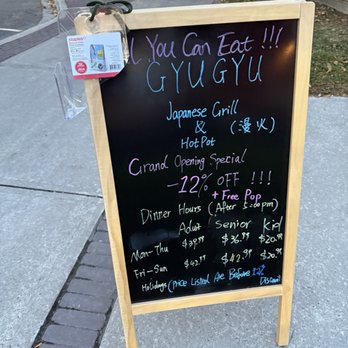 All You Can Eat !!!
GYUGYU
Japanese Grill
&
(漫火)
Hot Pot
Grand Opening Special
-12% OFF !!!
+ Free Pop
Dinner Hours (After 5:00pm)
Adult Senior Kid
Mon-Thu $39.99 $36.99 $20.99
Fri-Sun $43.99 $42.99 $20.99
Holidays (Price Listed Are Before 12%
Discount)